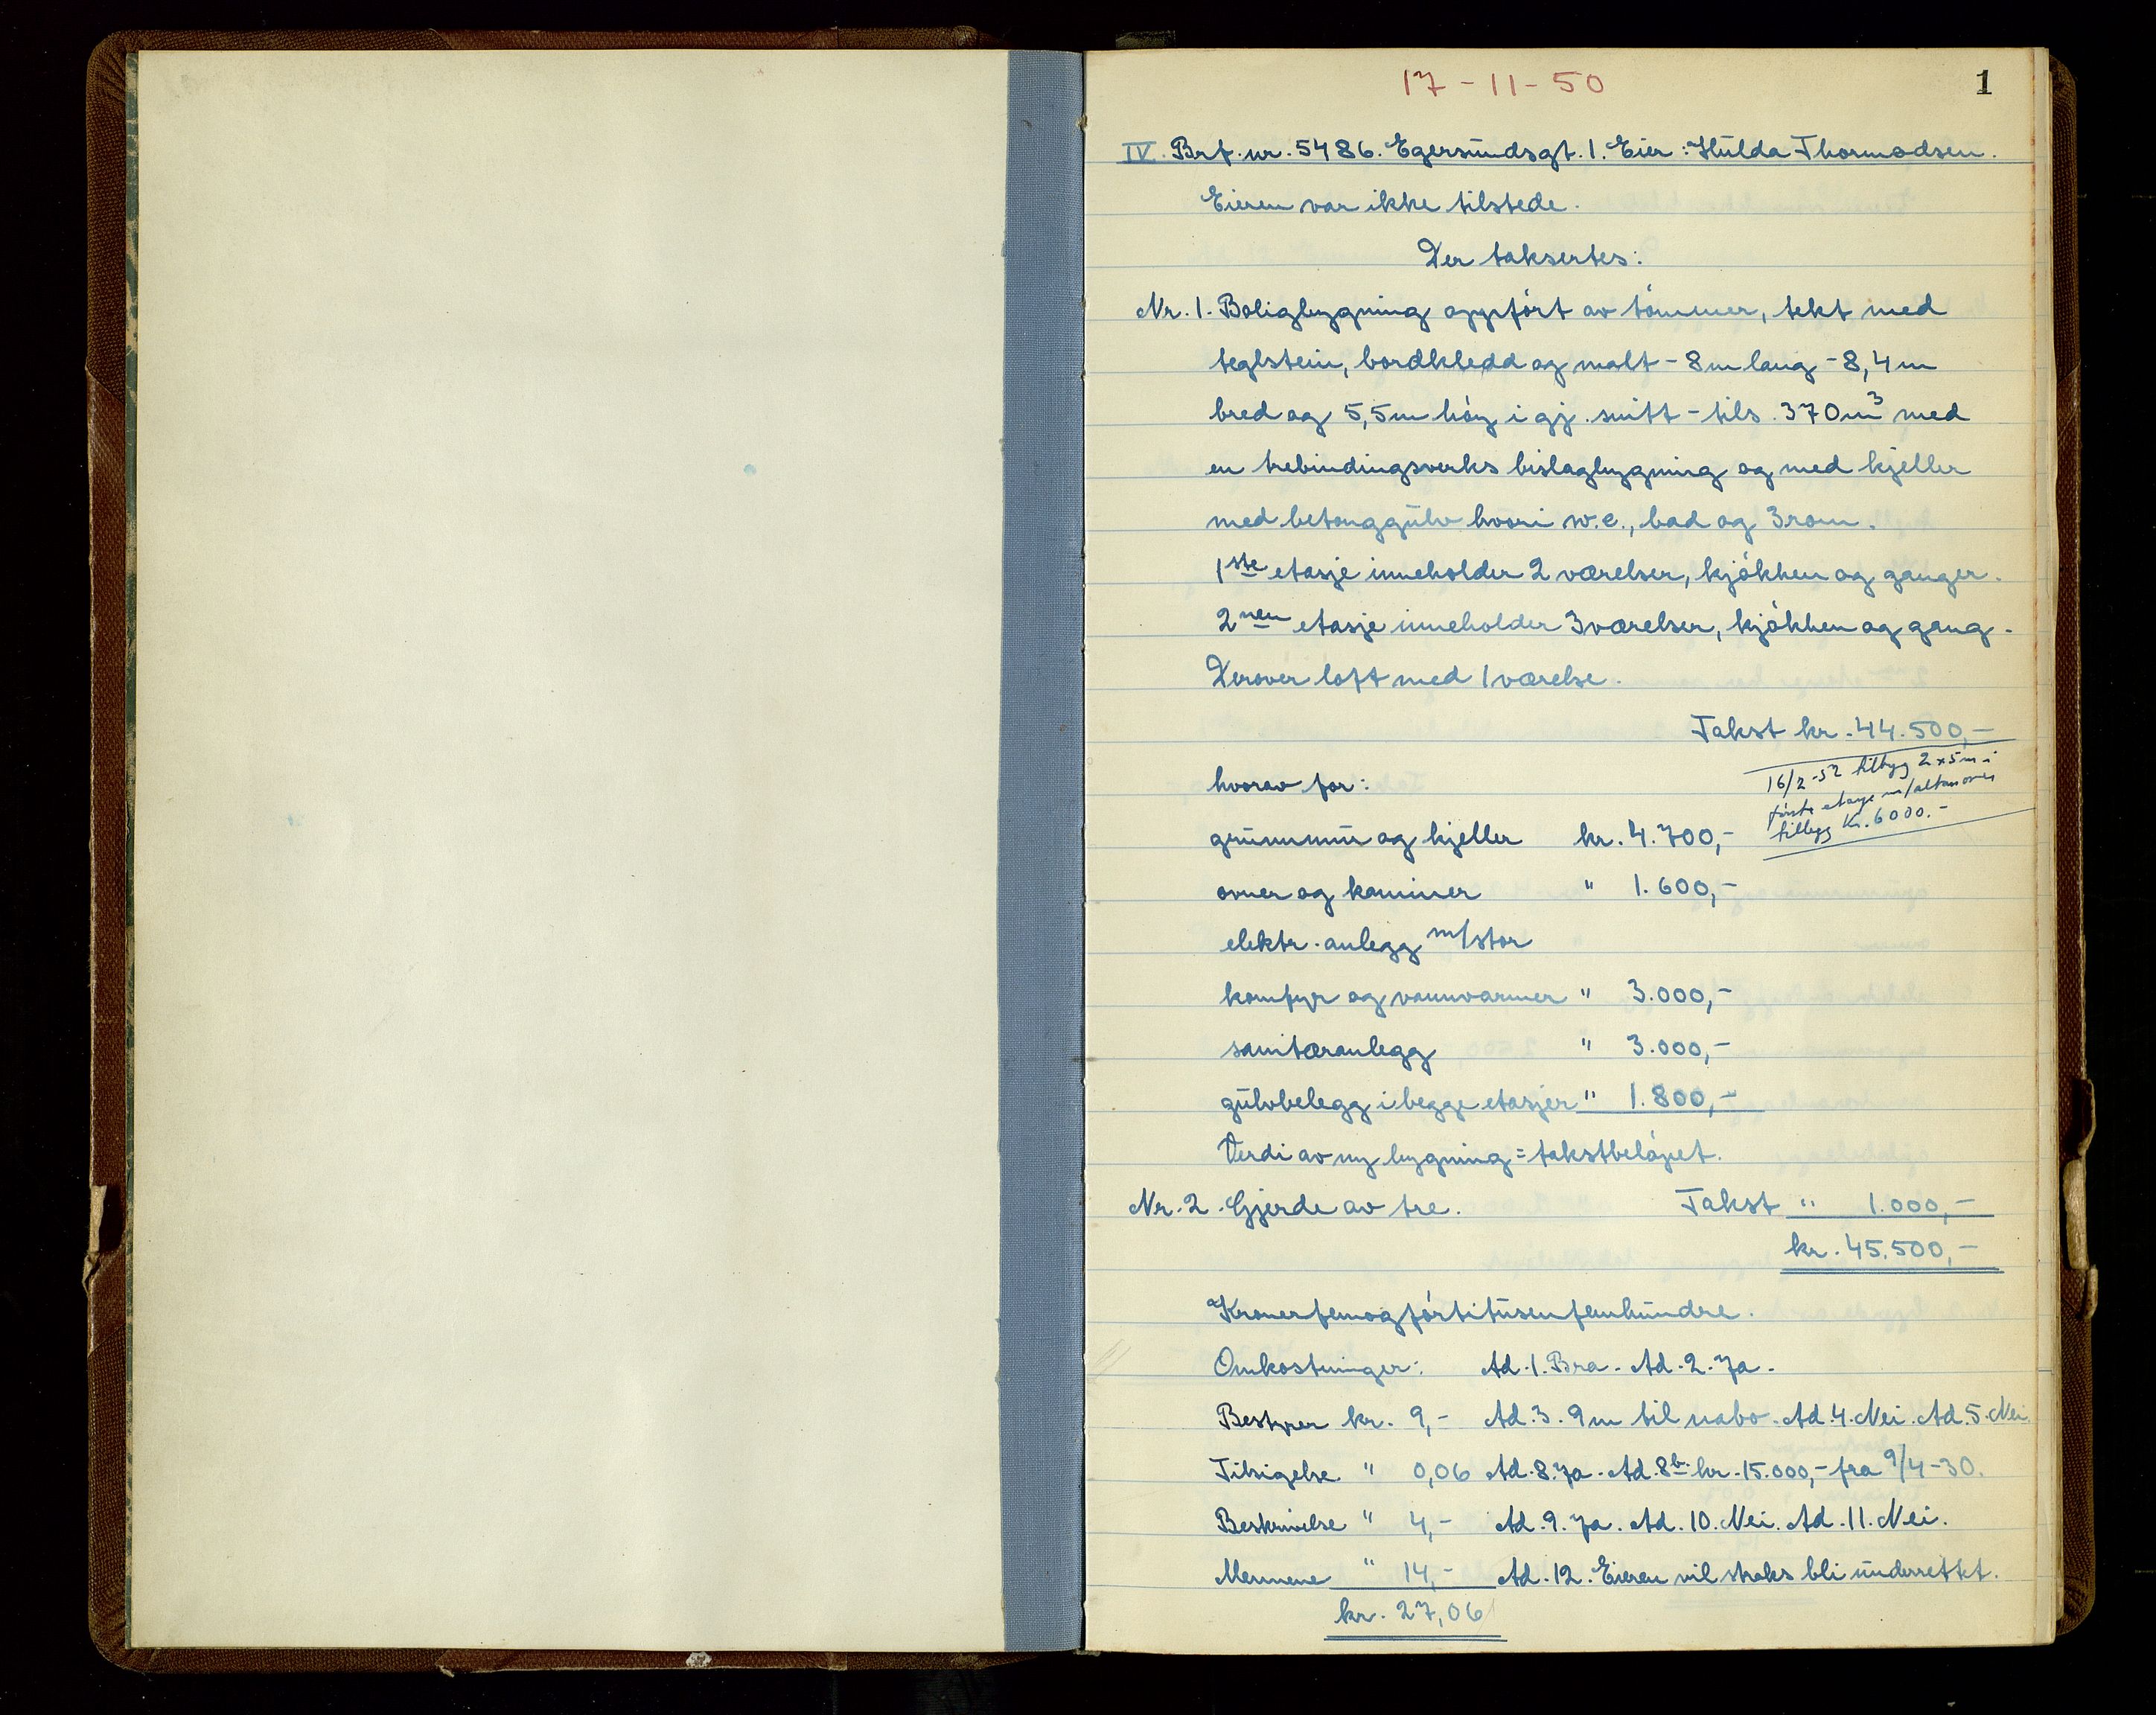 17-11-50
1
IV. Brf. nr. 5486. Egersundsgt. 1. Eier: Hulda Thormodsen.
Eieren var ikke tilstede.
Der taksertes:
Nr. 1. Boligbygning oppført av tømmer, tekt med
teglstein, bordkledd og malt - 8m lang - 8,4m
bred og 5,5m høy i gj. snitt - tils. 370m³ med
en trebindingsverks bislagbygning og med kjeller
med betonggulv hvori w.c., bad og 3 rom.
1ste etasje inneholder 2 værelser, kjøkken og ganger.
2nen etasje inneholder 3 værelser, kjøkken og gang.
Derover loft med 1 værelse.
Takst kr. 44.500,-
16/2-52 tilbygg 2x5m i
første etasje m/altan over
tillegg Kr. 6000.-
hvorav for:
grunnmur og kjeller kr. 4.700,-
ovner og kaminer " 1.600,-
elektr. anlegg m/stor
komfyr og vannvarmer " 3.000,-
sanitæranlegg " 3.000,-
gulvbelegg i begge etasjer " 1.800,-
Verdi av ny bygning = takstbeløpet.
Nr. 2. Gjerde av tre. Takst " 1.000,-
kr. 45.500,-
Kroner femogførtitusenfemhundre.
Omkostninger: Ad. 1. Bra. Ad. 2. Ja.
Bestyrer kr. 9,- Ad. 3. 9m til nabo. Ad. 4. Nei. Ad. 5. Nei.
Tilsigelse " 0,06 Ad. 8. Ja. Ad. 8b. kr. 15.000,- fra 9/4-30.
Beskrivelse " 4,- Ad. 9. Ja. Ad. 10. Nei. Ad. 11. Nei.
Mennene " 14,- Ad. 12. Eieren vil straks bli underrettet.
kr. 27,06